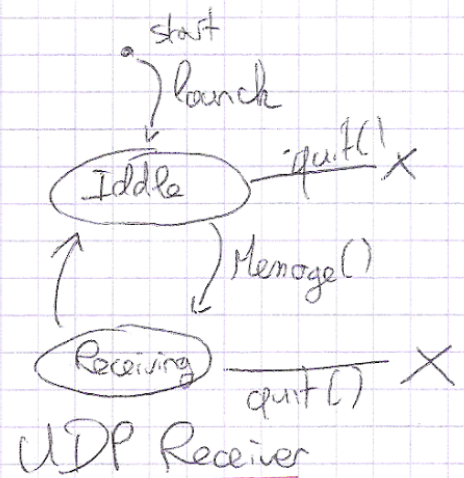 start
launch
Iddle
quit()
Message()
Receiving
quit()
UDP Receiver